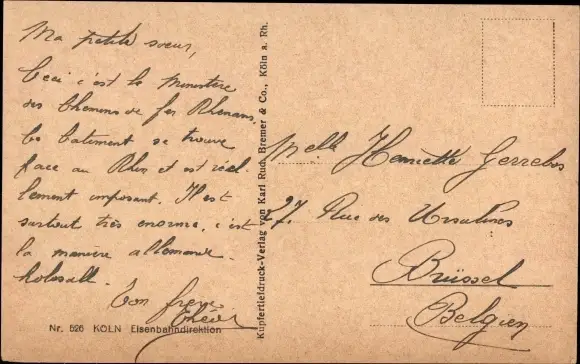 Ma petite soeur,
Ceci c'est le Ministère
des Chemins de fer Rhénans,
Le batiment se trouve
face au Rhin et est réel-
lement imposant. Il est
surtout très enorme, c'est
la manière allemande
kolosall.
Ton frere
Nr. 526 KÖLN Eisenbahndirektion
Kupfertiefdruck-Verlag von Karl Rud. Bremer & Co., Köln a. Rh.
Melle Henriette Gerrebos
27. Rue des Ursulines
Brüssel
Belgien